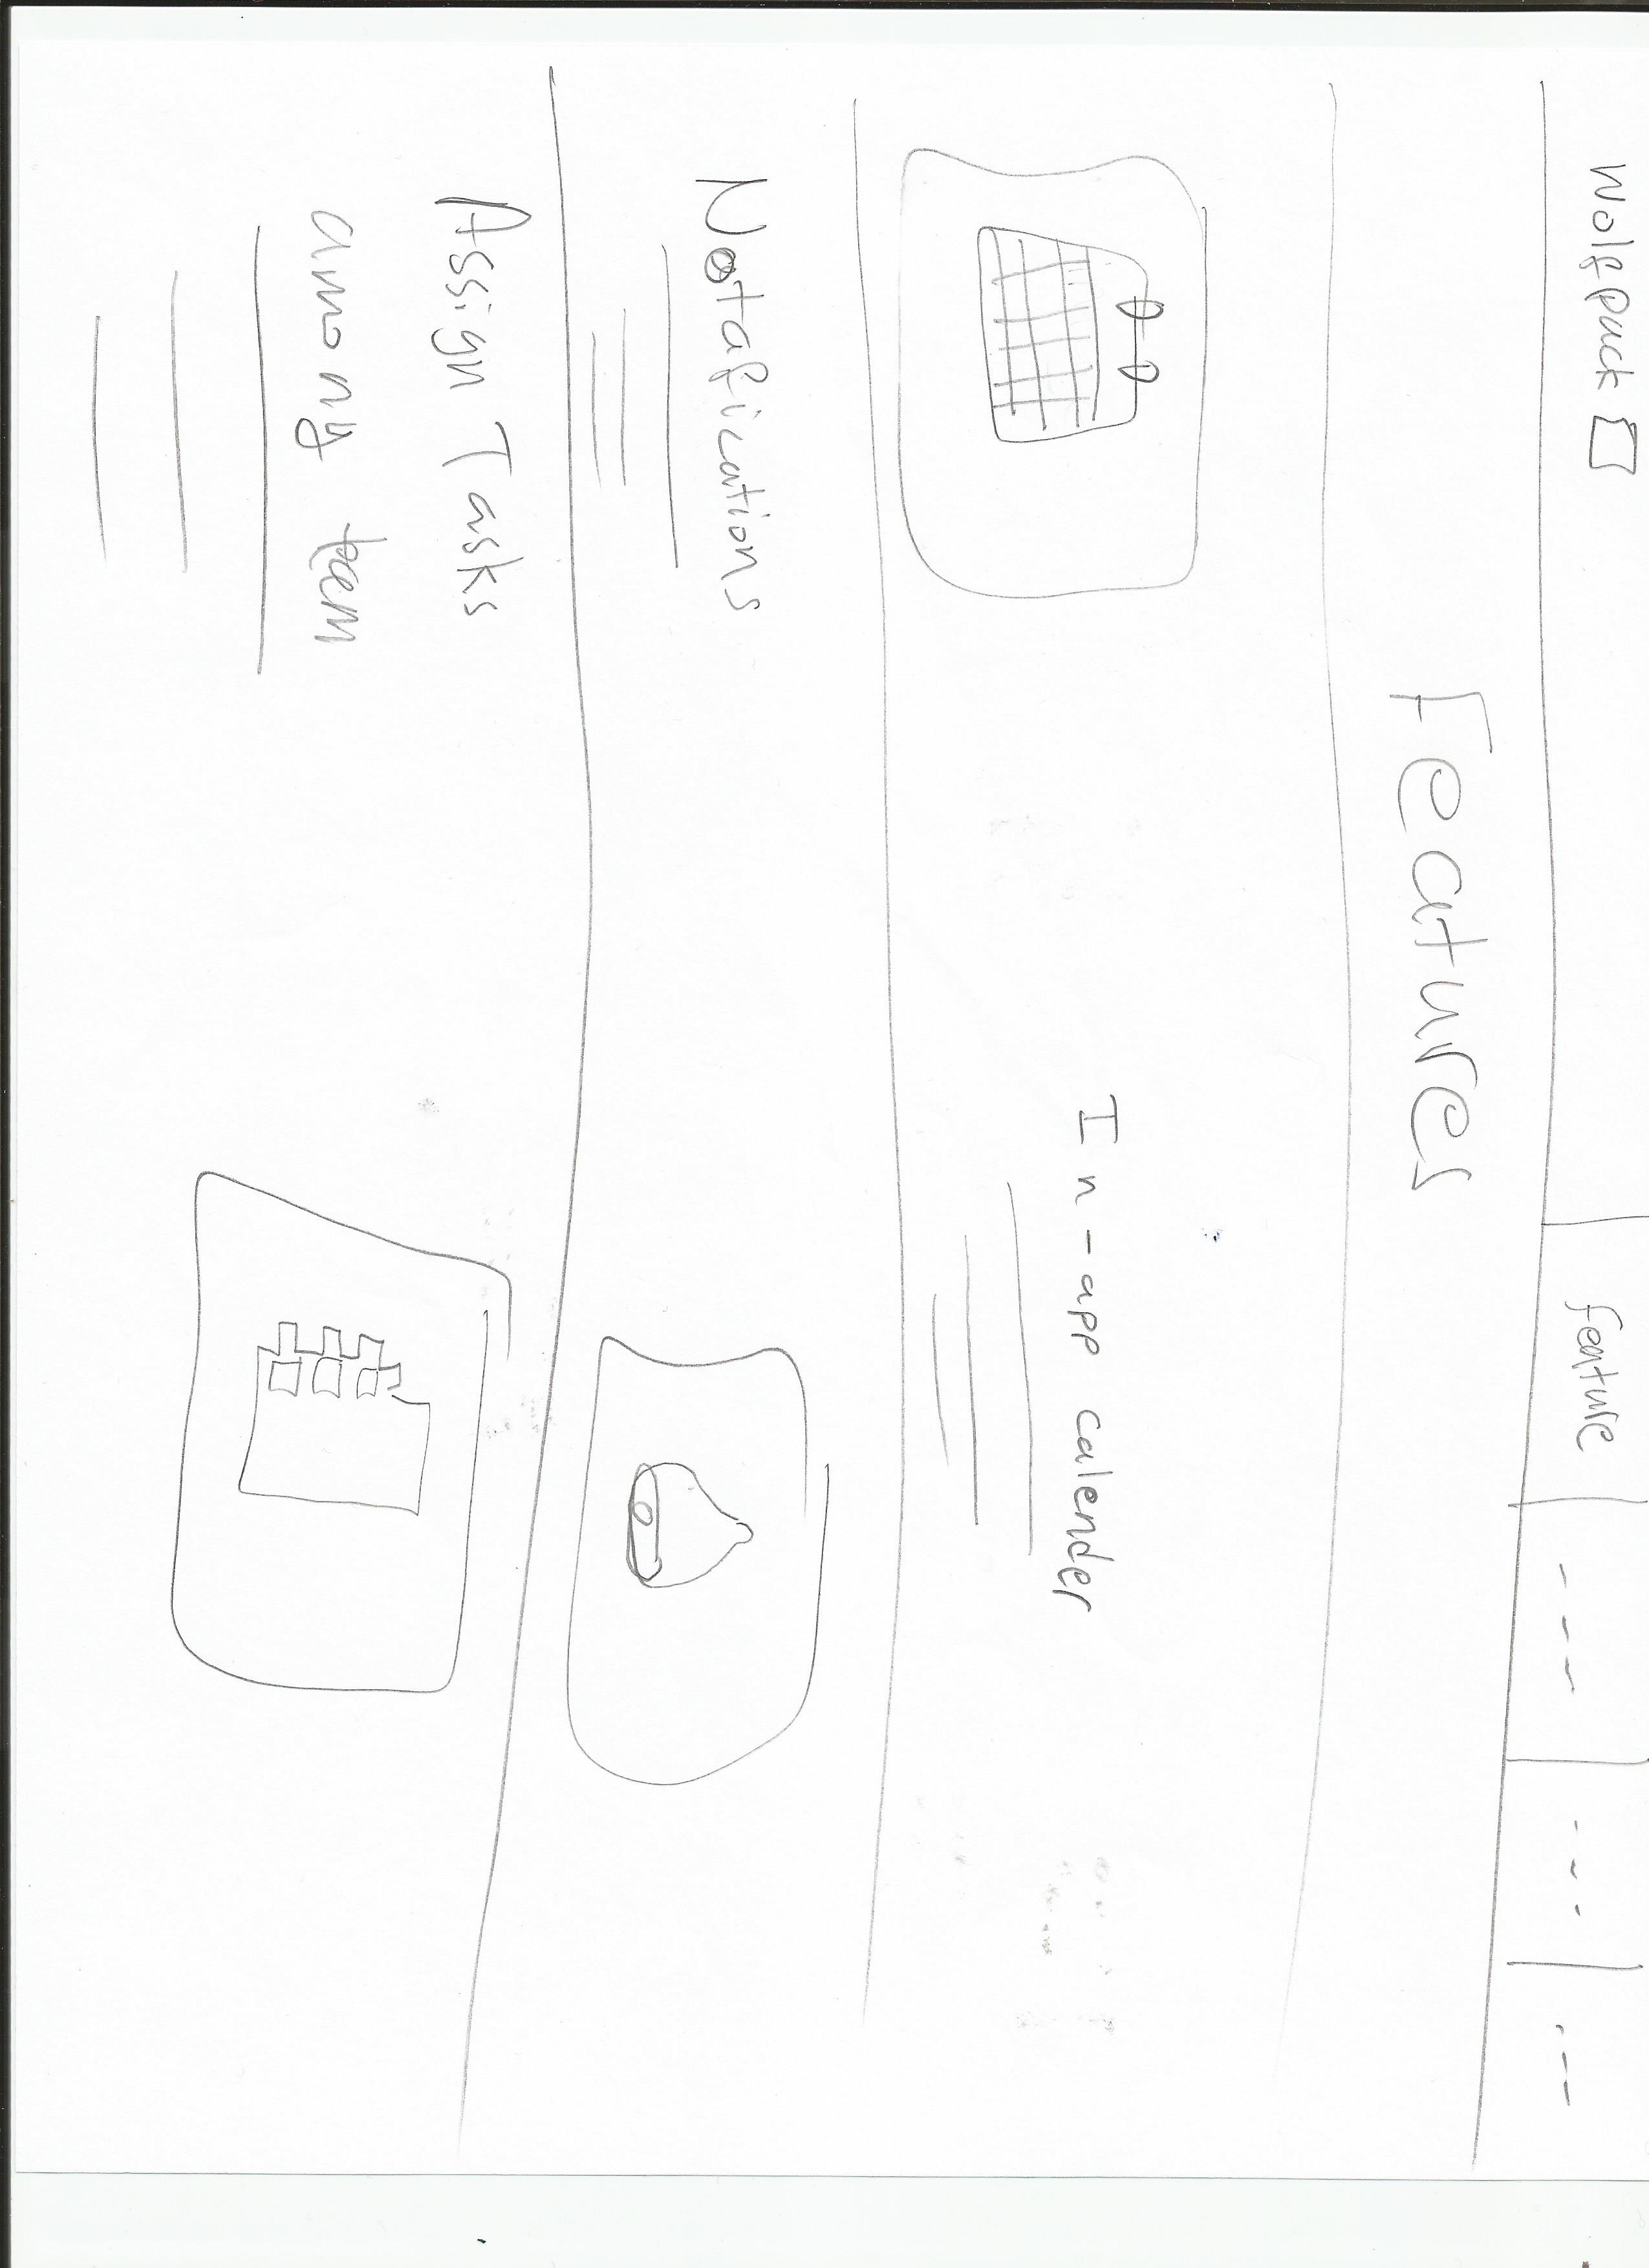 Wolfpack
feature
Features
In-app calender
Notafications
Assign Tasks
among team